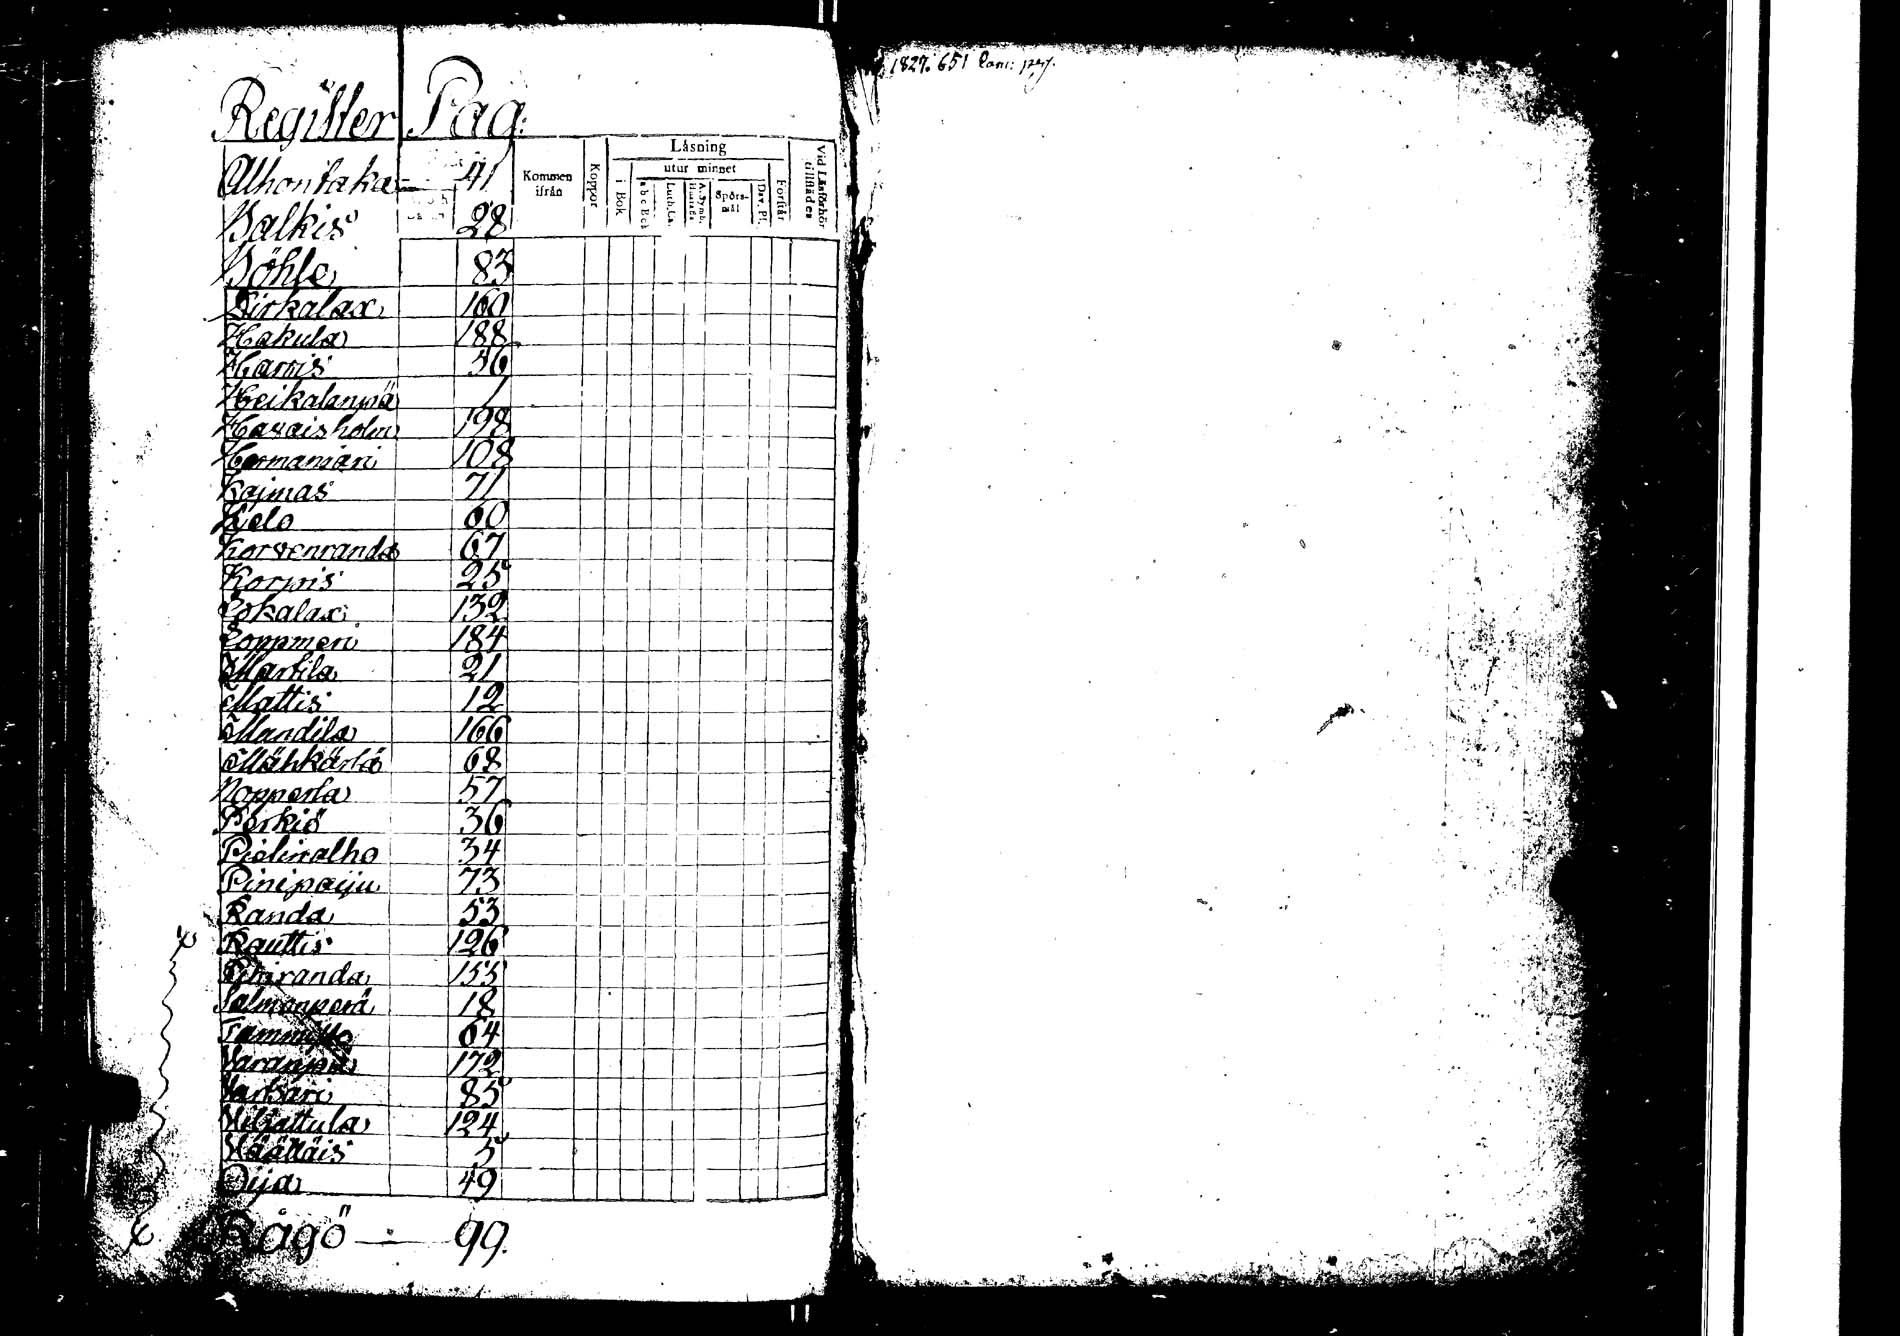 Register Pag:
Kommen ifrån Koppor Läsning utur minnet i Bok a b c Bok Luth. Ca. A. Symb. Hustafl. Spörs-mål Dav. Ps. Förstår Vid Läsförhör tillstädes
Alhontaka 41
Balkis 28
Böhle 83
Dirkalax 160
Hakula 188
Harris 56
Heikalanpä 1
Havaisholm 198
Hermansari 108
Kajmas 71
Kelo 60
Korvenranda 67
Korpis 25
Lokalax 132
Loppmeri 184
Martila 21
Mattis 12
Mandila 166
Mähkärlä 68
Nopperla 57
Perkiö 36
Pietinalho 34
Pinipaiju 73
Randa 53
Rauttis 126
Rihiranda 155
Salmenperä 18
Tammitto 64
Varanpä 172
Varsari 85
Viljattula 124
Väättäis 5
Oija 49
Rågö 99.
1827. 651